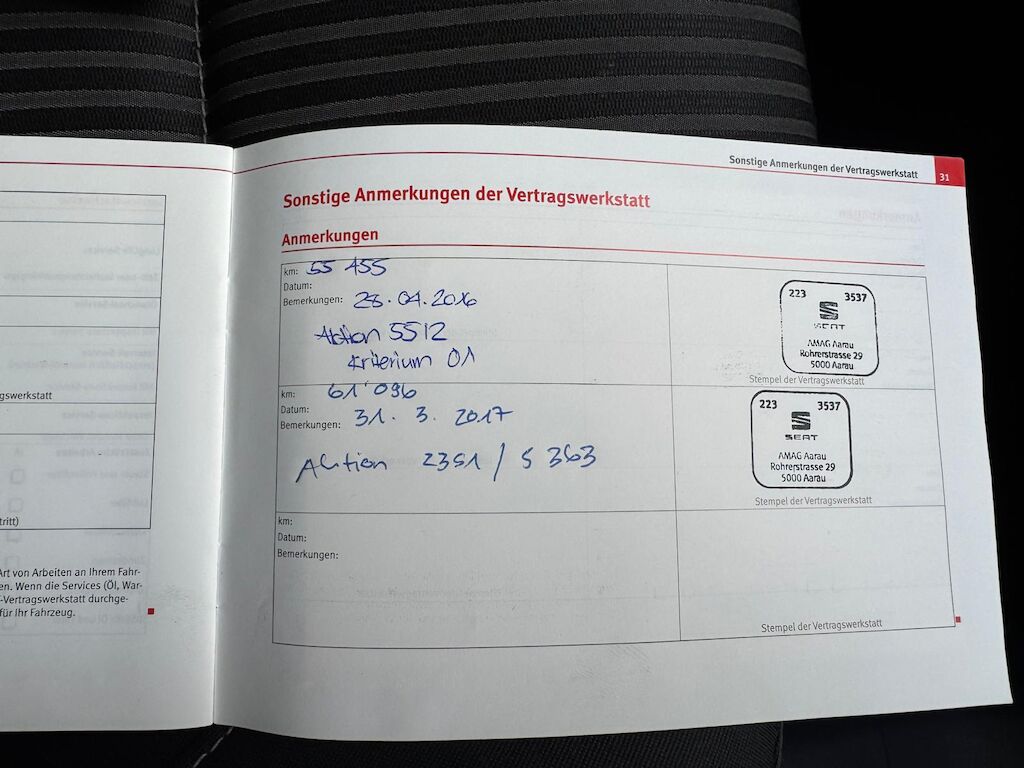 Sonstige Anmerkungen der Vertragswerkstatt 31
gswerkstatt
tritt)
Art von Arbeiten an Ihrem Fahr-
en. Wenn die Services (Öl, War-
-Vertragswerkstatt durchge-
für Ihr Fahrzeug.
Sonstige Anmerkungen der Vertragswerkstatt
Anmerkungen
km: 55 455
Datum:
Bemerkungen: 28.04.2016
Aktion 5512
Kriterium 01
223 3537
SEAT
AMAG Aarau
Rohrerstrasse 29
5000 Aarau
Stempel der Vertragswerkstatt
km: 61'096
Datum: 31. 3. 2017
Bemerkungen:
Aktion 23S1 / S 363
223 3537
SEAT
AMAG Aarau
Rohrerstrasse 29
5000 Aarau
Stempel der Vertragswerkstatt
km:
Datum:
Bemerkungen:
Stempel der Vertragswerkstatt